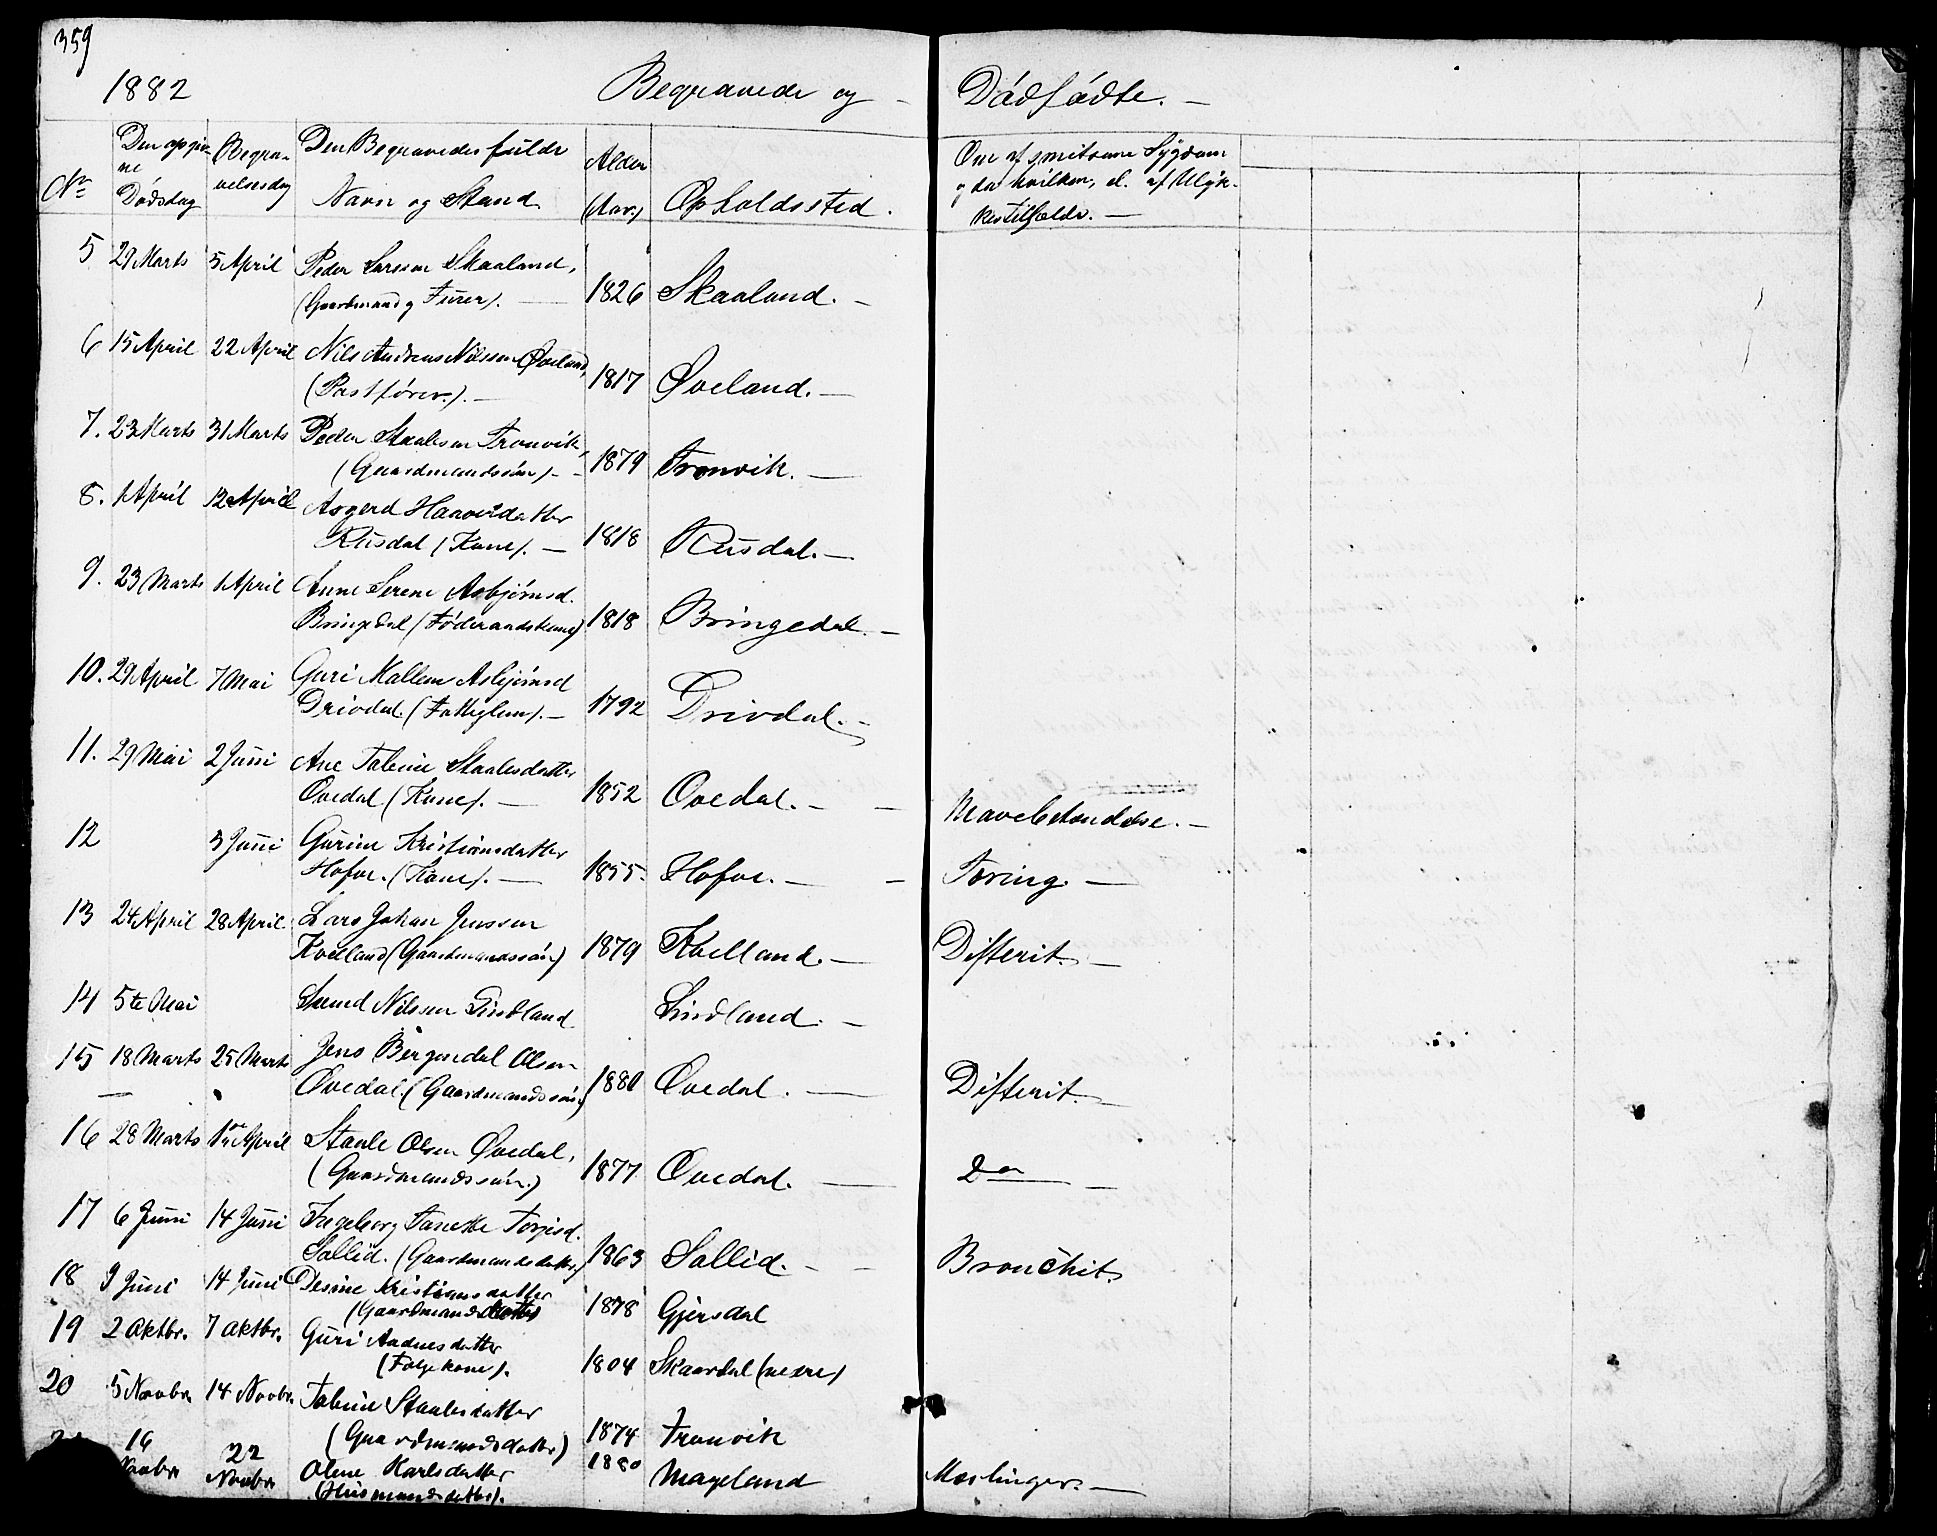 359
1882 Begravede og — Dødfødte. —
No
Den opgivne Dødsdag
Begravelsesdag
Den Begravedes fulde Navn og Stand
Alder (Aar)
Opholdssted.
Om af smitsom Sygdom og da hvilken, el. af Ulykkestilfælde. —
5 29 Marts 5 April Peder Larssen Skaaland,
(Gaardmand og Furer). — 1826 Skaaland. —
6 15 April 22 April Nils Andreas Nilssen Øveland,
(Postfører.). — 1817 Øveland. —
7. 23 Marts 31 Marts Peder Staalesen Tronvik,
(Gaardmandssøn) - 1879 Tronvik. —
8. 1 April 12 April Asgerd Haavardatter
Rusdal (Kone). — 1818 Rusdal. —
9. 23 Marts 1 April Anne Serene Asbjørnsd.
Bringedal (Føderaadskone) 1818 Bringedal. —
10. 29 April 7 Mai Guri Mallene Asbjørnsd
Drivdal. (Fattiglem). — 1792 Drivdal. -
11. 29 Mai 2 Juni Ane Tabine Staalesdatter
Øvedal (Kone). — 1852 Ovedal. — — Mavebetændelse. —
12 3 Juni Gurine Kristiansdatter
Hofoe. (Kone). — 1855. Hofoe. — — Tæring. —
13 24 April 28 April. Lars Johan Jenssen
Kvelland (Gaardmandssøn) 1879 Kvelland. — Difterit. —
14 5te Mai Svend Nilssen Lindland Lindland. —
15 18 Marts 25 Marts Jens Bergendal Olsen
Øvedal. (Gaardmandssøn) 1880 Øvedal. — Difterit. —
16 28 Marts 1 April Staale Olsen Øvedal,
(Gaardmandssøn.) 1877 Øvedal. — Do —
17 6 Juni 14 Juni Ingeborg Tanette Torjusd.
Sallid. (Gaardmandsdatter) 1863 Sallid. — — Bronchit.
18 9 Juni 14 Juni Desine Kristiansdatter
(Gaardmandsdatter) 1878 Gjersdal
19 2 Oktbr. 7 Oktbr. Guri Aadnesdatter
(Folgekone). 1804 Skaardal (nedre)
20 5 Novbr. 14 Novbr. Tabine Staalesdatter
(Gaardmandsdatter) 1874 Tronvik
16 Novbr 22 Novbr Olene Karlsdatter
(Husmandsdatter). 1880 Mageland Mæslinger. —